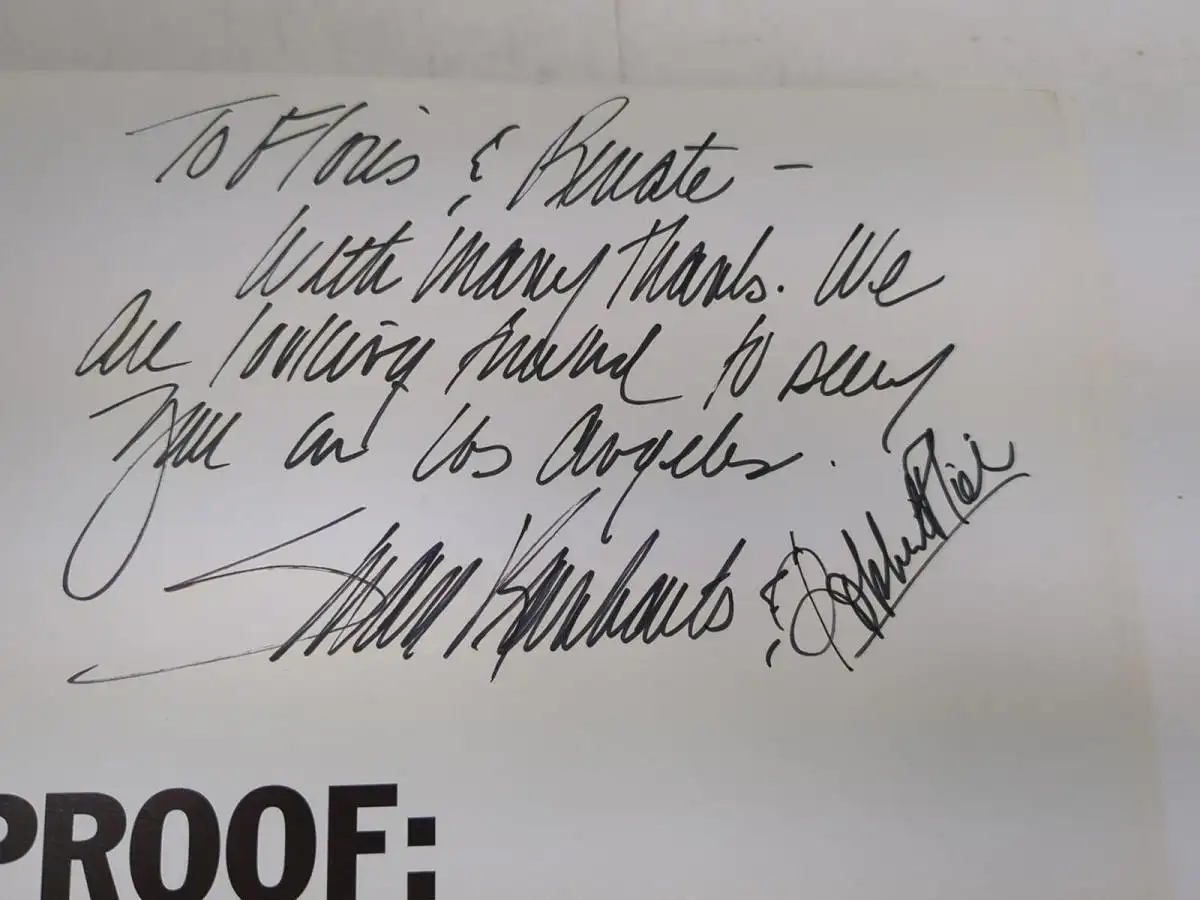 To Floris & Renate -
With many thanks. We
are looking forward to seeing
you in Los Angeles.
Susan Rankaitis & Robbert Flick
PROOF: